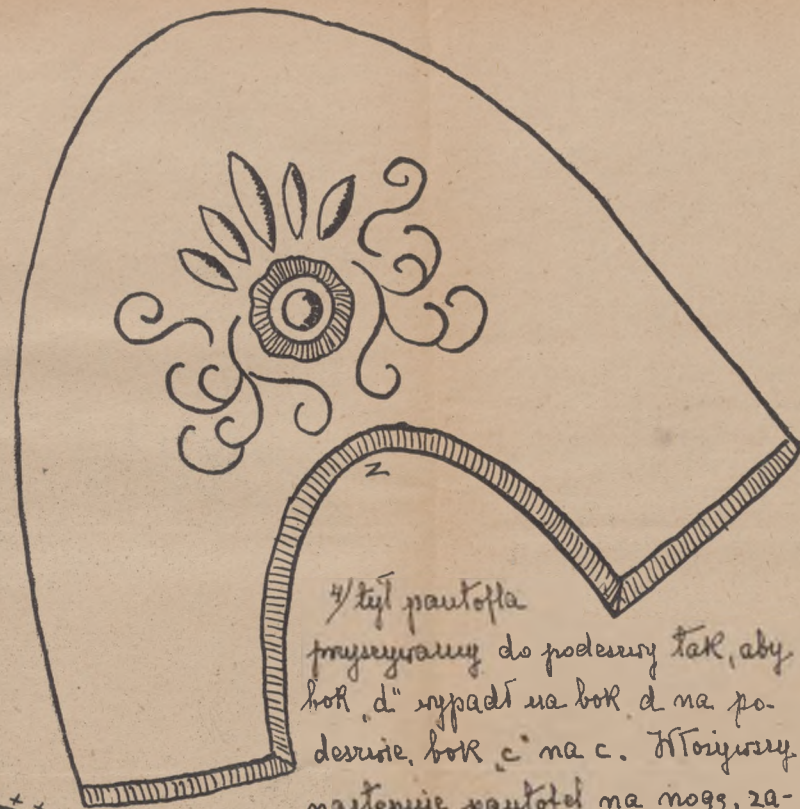 z
4/ tył pantofla
przyszywamy do podeszwy tak, aby
bok "d" wypadł na bok d na po-
deszwie, bok "c" na c. Włożywszy
następnie pantofel na nogę, za-